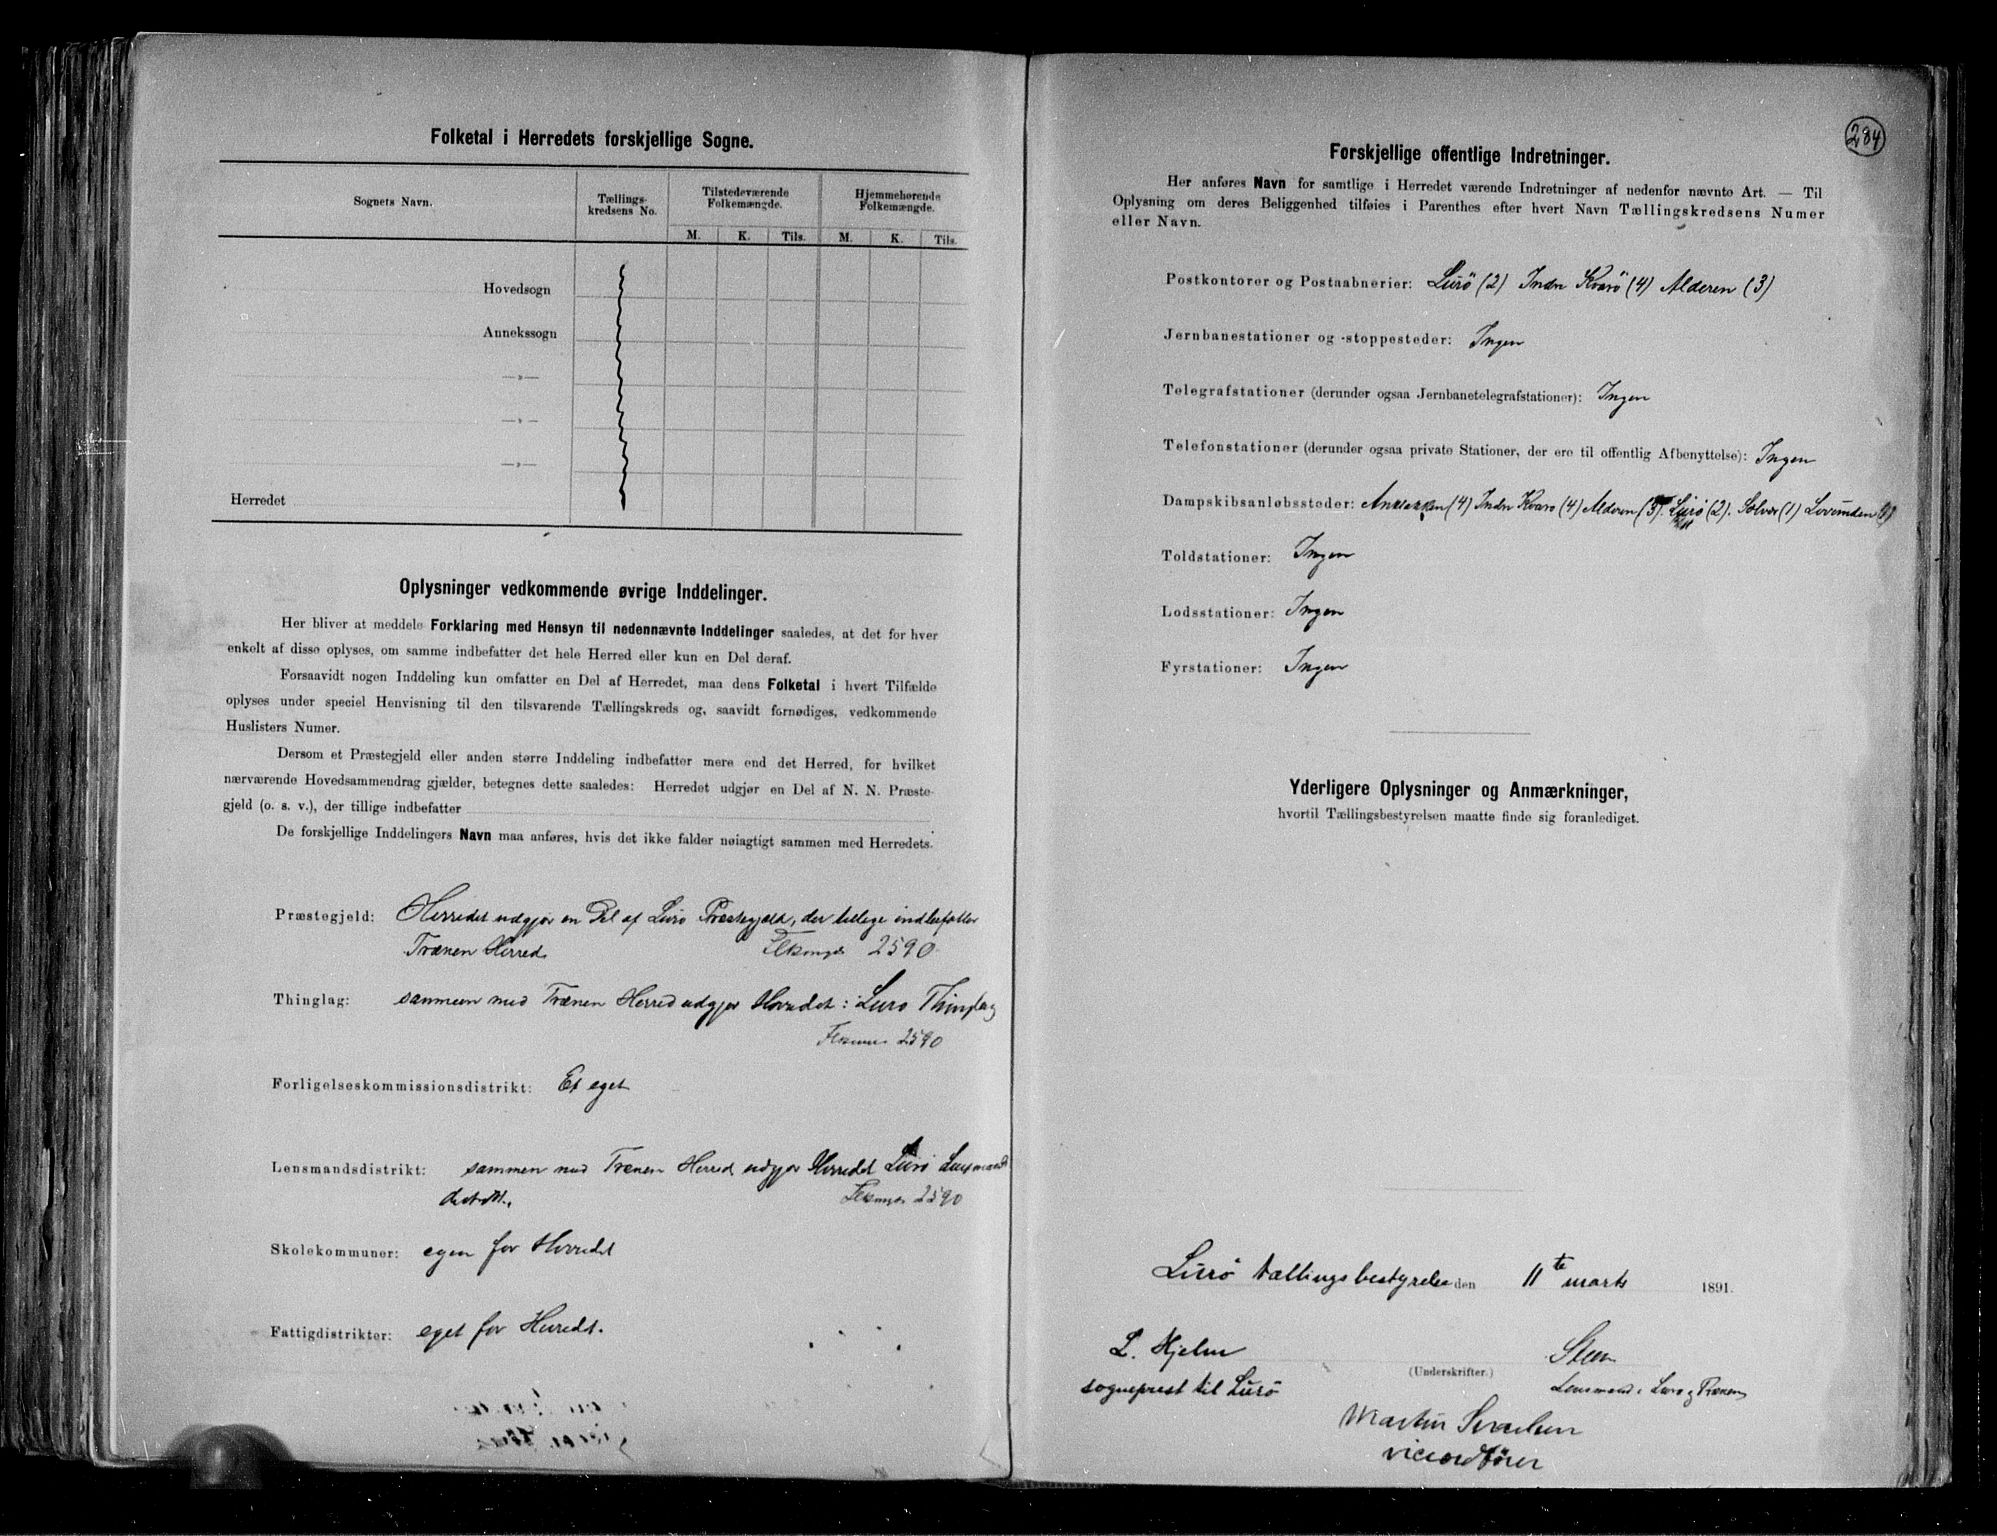 Folketal i Herredets forskjellige Sogne.
Sognets Navn.
Tællings-
kredsens No.
Tilstedeværende
Folkemængde.
Hjemmehørende
Folkemængde.
M. K. Tils. M. K. Tils.
Hovedsogn
Annekssogn
—„—
—„—
—„—
Herredet
Oplysninger vedkommende øvrige Inddelinger.
Her bliver at meddele Forklaring med Hensyn til nedennævnte Inddelinger saaledes, at det for hver
enkelt af disse oplyses, om samme indbefatter det hele Herred eller kun en Del deraf.
Forsaavidt nogen Inddeling kun omfatter en Del af Herredet, maa dens Folketal i hvert Tilfælde
oplyses under speciel Henvisning til den tilsvarende Tællingskreds og, saavidt fornødiges, vedkommende
Huslisters Numer.
Dersom et Præstegjeld eller anden større Inddeling indbefatter mere end det Herred, for hvilket
nærværende Hovedsammendrag gjælder, betegnes dette saaledes: Herredet udgjør en Del af N. N. Præste-
gjeld (o. s. v.), der tillige indbefatter
De forskjellige Inddelingers Navn maa anføres, hvis det ikke falder nøiagtigt sammen med Herredets.
Præstegjeld: Herredet udgjør en Del af Lurö Præstegjeld, der tillige indbefatter
Trænen Herred 2590
Thinglag: sammen med Trænen Herred udgjør Herredet: Lurö Thinglag
2590
Forligelseskommissionsdistrikt: Et eget
Lensmandsdistrikt: sammen med Trænen Herred udgjør Herredet Lurö Lensmands
distrikt.
2590
Skolekommuner: egen for Herredet
Fattigdistrikter: eget for Herredt.
284
Forskjellige offentlige Indretninger.
Her anføres Navn for samtlige i Herredet værende Indretninger af nedenfor nævnte Art. — Til
Oplysning om deres Beliggenhed tilføies i Parenthes efter hvert Navn Tællingskredsens Numer
eller Navn.
Postkontorer og Postaabnerier: Lurö (2) Indre Kvarö (4) Alderen (3)
Jernbanestationer og -stoppesteder: Ingen
Telegrafstationer (derunder ogsaa Jernbanetelegrafstationer): Ingen
Telefonstationer (derunder ogsaa private Stationer, der ere til offentlig Afbenyttelse): Ingen
Dampskibsanløbssteder: (4) Indre Kvarö (4) Alderen (3). Lurö (2). Solvær (1) Lovunden
Toldstationer: Ingen
Lodsstationer: Ingen
Fyrstationer: Ingen
Yderligere Oplysninger og Anmærkninger,
hvortil Tællingsbestyrelsen maatte finde sig foranlediget.
Lurö tællingsbestyrelse den 11te marts 1891.
L. Hjelm Steen
(Underskrifter.)
sogneprest til Lurö Lensmand i Lurö og Trænen
Martin
viceordfører